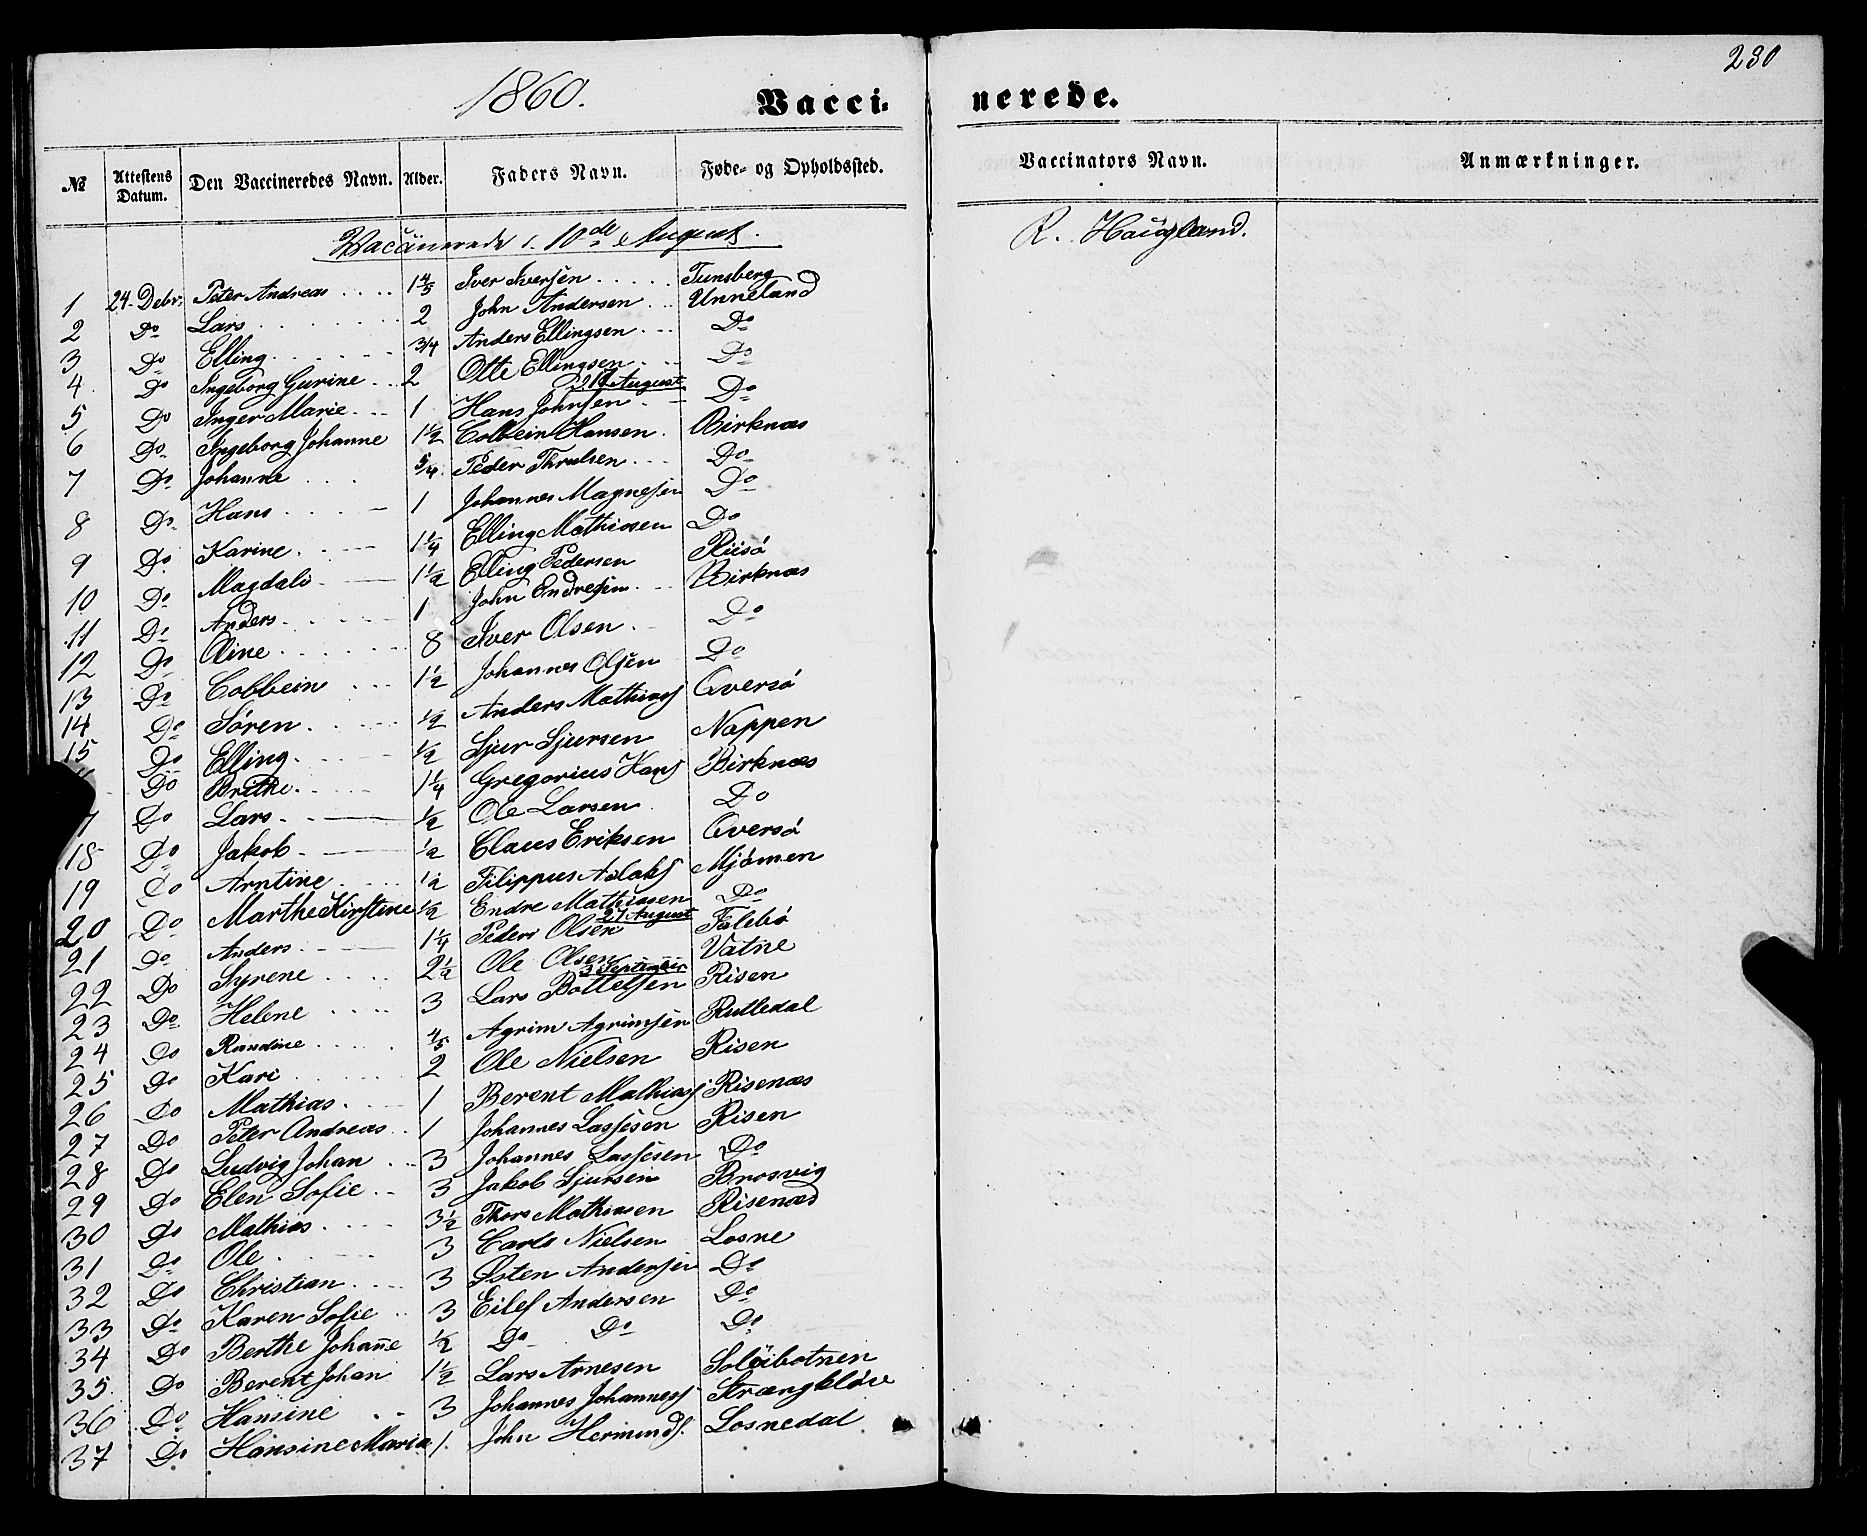 230
1860. Vacci- nerede.
№ Attestens Datum. Den Vaccineredes Navn. Alder. Faders Navn. Føde- og Opholdssted. Vaccinators Navn. Anmærkninger.
10de August. R. Haugland.
1 24. Debr. Peter Andreas 1 4/5 Iver Iversen Tunsberg
2 Do Lars 2 John Andersen Unneland
3 Do Elling 3/4 Anders Ellingsen Do
4 Do Ingeborg Gurine 2 Otte Ellingsen Do
August
5 Do Inger Marie 1 Hans Johnsen Do
6 Do Ingeborg Johanne 1 1/2 Colbein Hansen Birknæs
7 Do Johanne 5/4 Peder Thrulsen Do
8 Do Hans 1 Johannes Magnesen Do
9 Do Karine 1 1/4 Elling Mathiasen Do
10 Do Magdali 1 1/2 Elling Pedersen Risö
11 Do Anders 1 John Endresen Birknæs
12 Do Oline 8 Iver Olsen Do
13 Do Cobbein 1 1/2 Johannes Olsen Do
14 Do Sören 1/2 Anders Mathiass Qversö
15 Do Elling 1/2 Sjur Sjursen Nappen
Do Brithe 1 1/4 Gregorius Hans Birknæs
7 Do Lars 1/2 Ole Larsen Do
18 Do Jakob 1/2 Claus Eriksen Qversö
19 Do Arntine 1/2 Filippus Aslaks Mjömen
20 Do Marthe Kirstine 1/2 Endre Mathiasen Do
27 August
21 Do Anders 1 1/4 Peder Olsen Falebö
22 Do Syrene 2 1/2 Ole Olsen Vatne
3 September
23 Do Helene 3 Lars Bottelsen Risen
24 Do Randine 4/5 Agrim Agrimsen Rutledal
25 Do Kari 2 Ole Nielsen Risen
26 Do Mathias 1 Berent Mathiass Risenæs
27 Do Peter Andreas 1 Johannes Lassesen Risen
28 Do Ludvig Johan 3 Johannes Lassesen Do
29 Do Elen Sofie 3 Jakob Sjursen Brosvig
30 Do Mathias 3 1/2 Thore Mathiasen Risenæs
31 Do Ole 3 Carls Nielsen Losne
32 Do Christian 3 Østen Andersen Do
33 Do Karen Sofie 3 Eilef Andersen Do
34 Do Berthe Johanne 1/2 Do Do Do
35 Do Berent Johan 1 1/2 Lars Arnesen Solöibotnen
36 Do Hansine 3 Johannes Johanness Strængklöve
37 Do Hansine Maria 1. John Hermunds. Losnedal